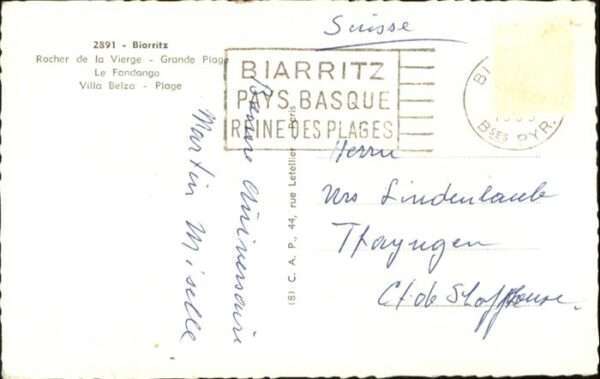 2891 - Biarritz
Rocher de la Vierge - Grande Plage
Le Fandango
Villa Belza - Plage
Suisse
BIARRITZ
PAYS BASQUE
REINE DES PLAGES
BSES PYR.
(S) C. A. P., 44, rue Letellier - Paris
Bonne Anniversaire
Martin Miselle
Herrn
Urs Lindenlaub
Thayngen
Ct. de Schaffhouse.